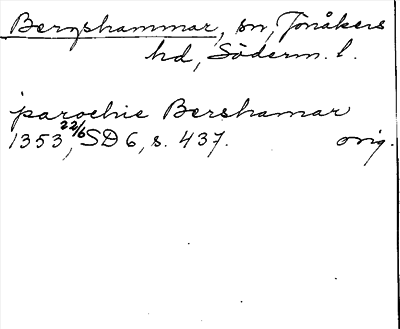 Bergshammar, sn, Jönåkers
hd, Söderm. l.
parochie Bershamar
1353 22/6, SD 6, s. 437. orig.